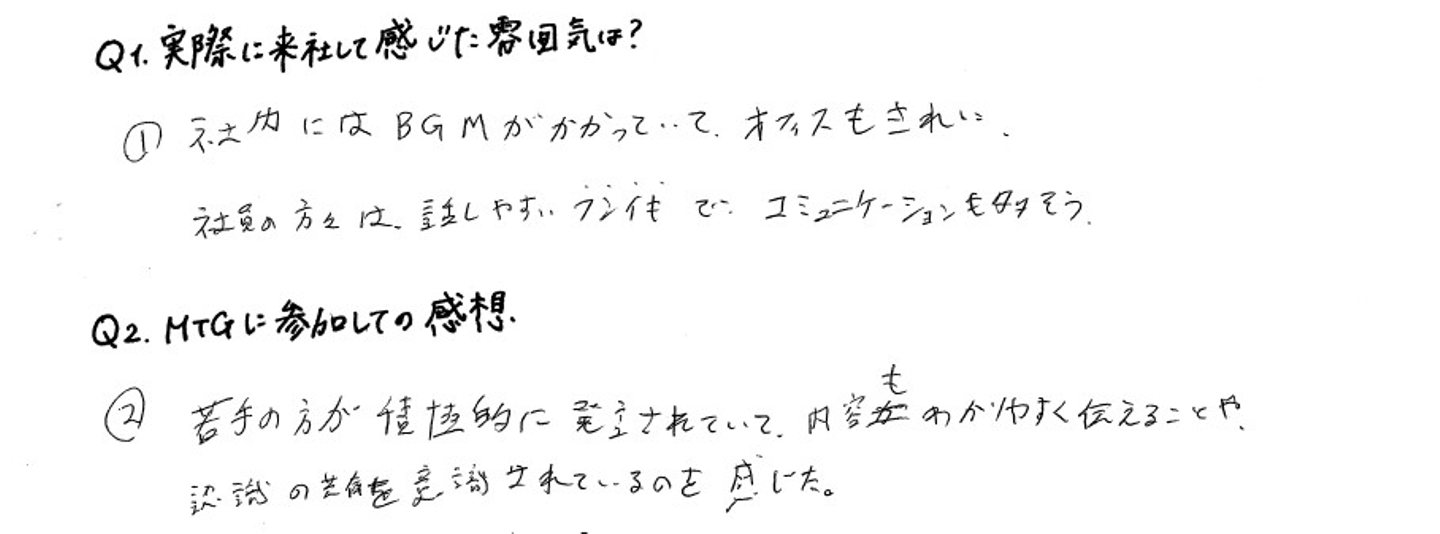 Q1. 実際に来社して感じた雰囲気は?
① 社内にはBGMがかかっていて、オフィスもきれい、
社員の方々は、話しやすい でコミュニケーションも多そう。
Q2. MTGに参加しての感想.
② 若手の方が積極的に発言されていて、内容もわかりやすく伝えることや、
認識の共有を意識されているのを感じた。